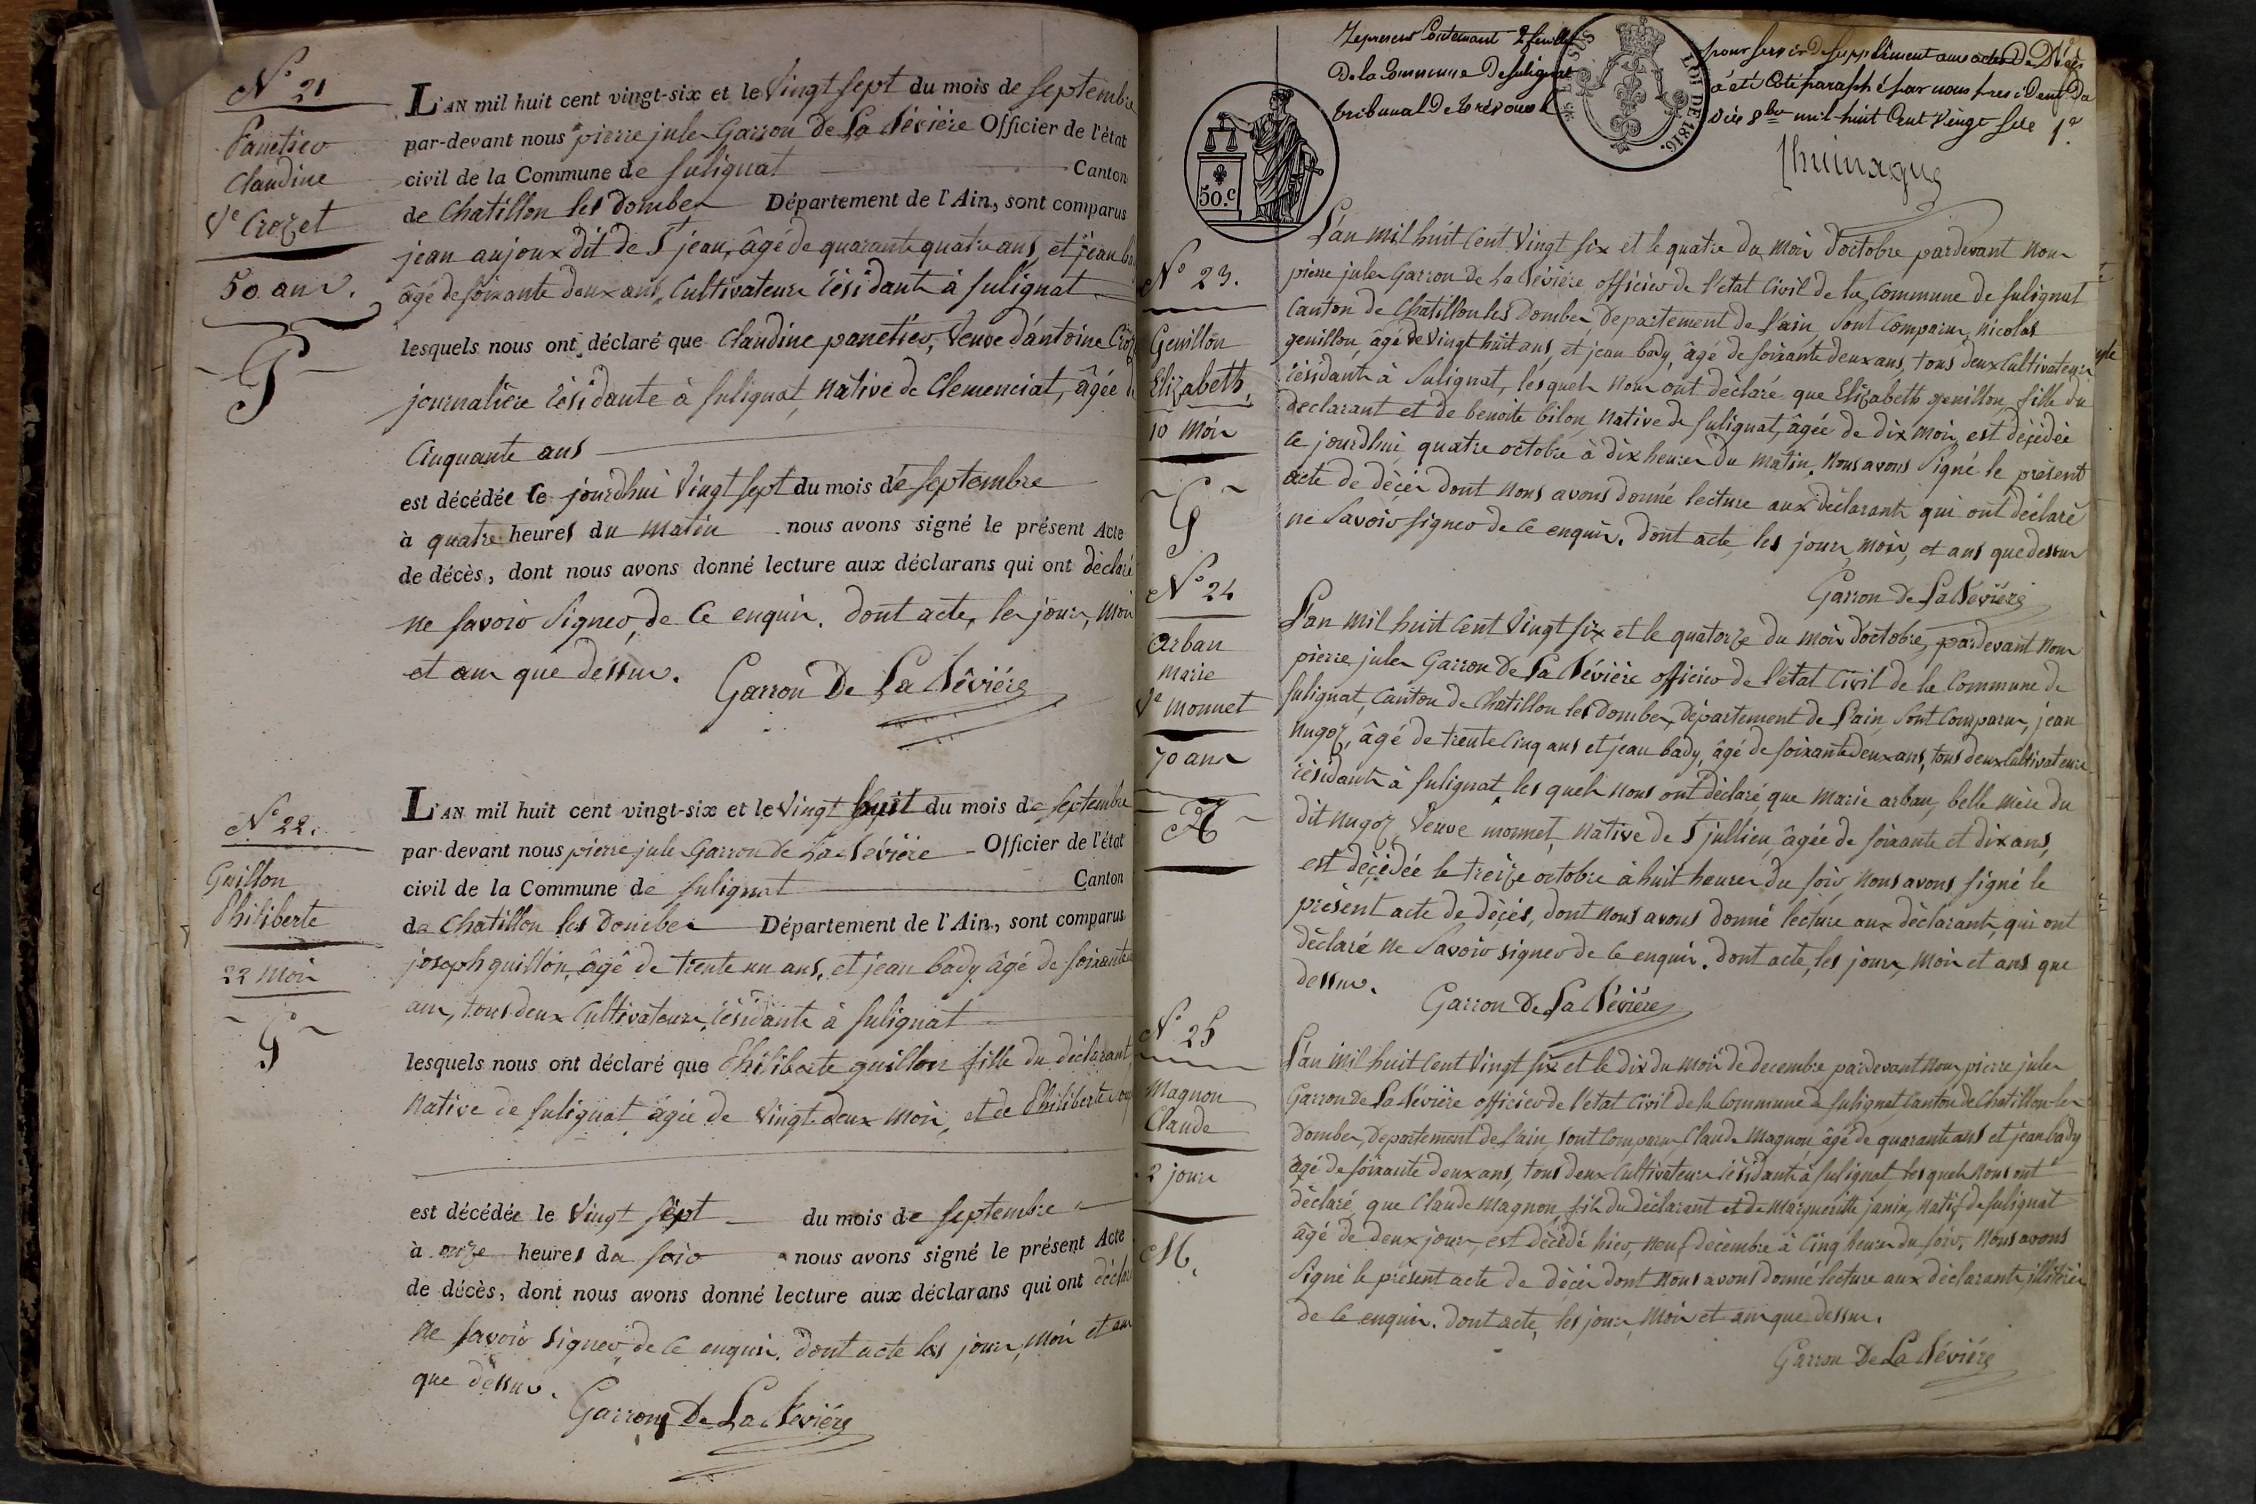 N° 21
Panetier
Claudine
Ve Crozet
50 ans.
P
L'AN mil huit cent vingt-six et le vingt sept du mois de septembre
par-devant nous pierre jules Garron De La Sévière Officier de l'état
civil de la Commune de sulignat Canton
de Chatillon les Dombes Département de l'Ain, sont comparus
jean anjoux dit de St jean, âgé de quarante quatre ans, et jean
âgé de soixante deux ans, Cultivateurs résidants à sulignat
lesquels nous ont déclaré que Claudine panetier, veuve d'antoine
journalière résidante à sulignat, native de Clemenciat, âgée
Cinquante ans
est décédée le jourdhui vingt sept du mois de septembre
à quatre heures du matin nous avons signé le présent Acte
de décès, dont nous avons donné lecture aux déclarans qui ont déclaré
ne savoir signer, de ce enquis. dont acte, les jours, mois
et ans que dessus. Garron De La Sévière
N° 22.
Guillon
Philiberte
22 mois
G
L'AN mil huit cent vingt-six et le vingt huit du mois de septembre
par-devant nous pierre jule Garron De La Sévière Officier de l'état
civil de la Commune de sulignat Canton
de Chatillon les Dombes Département de l'Ain, sont comparus
joseph guillon, âgé de trente un ans, et jean bady âgé de soixante
ans, tous deux Cultivateurs, résidants à sulignat
lesquels nous ont déclaré que Philiberte guillon fille du déclarant
native de sulignat âgée de vingt deux mois, et de Philiberte
est décédée le vingt sept du mois de septembre
à onze heures du soir nous avons signé le présent Acte
de décès, dont nous avons donné lecture aux déclarans qui ont déclaré
ne savoir signer, de ce enquis. dont acte les jours, mois et ans
que dessus.
Garron De La Sévière
Le present Contenant 2 feuillets
De la Commune De sulignat
tribunal De trévoux
pour servir De supplément aux actes De Décès
a été Coté paraphé par nous president Du
Dix 8bre mil huit Cent vingt six 1er
LOI DE 1816.
50.c
N° 23.
Genillon
Elizabeth,
10 mois
G
L'an mil huit Cent vingt six et le quatre du mois d'octobre pardevant nous
pierre jules Garron De La Sévière officier de l'état Civil de la Commune de sulignat
Canton de Chatillon les Dombes, Departement de l'ain, sont Comparus, nicolas
genillon, âgé de vingt huit ans, et jean bady, âgé de soixante deux ans, tous deux Cultivateurs
résidants à sulignat, lesquels nous ont déclaré que Elizabeth genillon, fille du
declarant et de benoite bilon, native de sulignat, âgée de dix mois, est décédée
ce jourdhui quatre octobre à dix heures du matin. nous avons signé le présent
acte de décès dont nous avons donné lecture aux déclarants qui ont déclaré
ne savoir signer de ce enquis. dont acte, les jours, mois, et ans que dessus
Garron De La Sévière
N° 24
arban
marie
Ve monnet
70 ans
A
L'an mil huit Cent vingt six et le quatorze du mois d'octobre, pardevant nous
pierre jules Garron De La Sévière officier de l'état Civil de la Commune de
sulignat, Canton de Chatillon les Dombes, Département de l'ain, sont Comparus, jean
nugoz, âgé de trente Cinq ans et jean bady, âgé de soixante deux ans, tous deux Cultivateurs
résidants à sulignat, les quels nous ont déclaré, que marie arban, belle mère du
dit nugoz, veuve monnet, native de St jullien, âgée de soixante et dix ans,
est décédée le treize octobre à huit heures du soir, nous avons signé le
présent acte de décés, dont nous avons donné lecture aux déclarants, qui ont
déclaré ne savoir signer de ce enquis. dont acte, les jours, mois et ans que
dessus. Garron De La Sévière
N° 25
Magnon
Claude
2 jours
M.
L'an mil huit Cent vingt six et le dix du mois de decembre pardevant nous pierre jules
Garron De La Sévière officier de l'état Civil de la Commune de sulignat Canton de Chatillon les
Dombes, Departement de l'ain, sont Comparus Claude magnon, âgé de quarante ans et jean bady
âgé de soixante deux ans, tous deux Cultivateurs résidants à sulignat, lesquels nous ont
déclaré, que Claude magnon, fils du déclarant et de marguerite janin, natif de sulignat
âgé de deux jours, est décédé hier, neuf décembre à Cinq heures du soir, nous avons
signé le présent acte de décès dont nous avons donné lecture aux déclarants, illitérés
de ce enquis. dont acte, les jours, mois et ans que dessus.
Garron De La Sévière